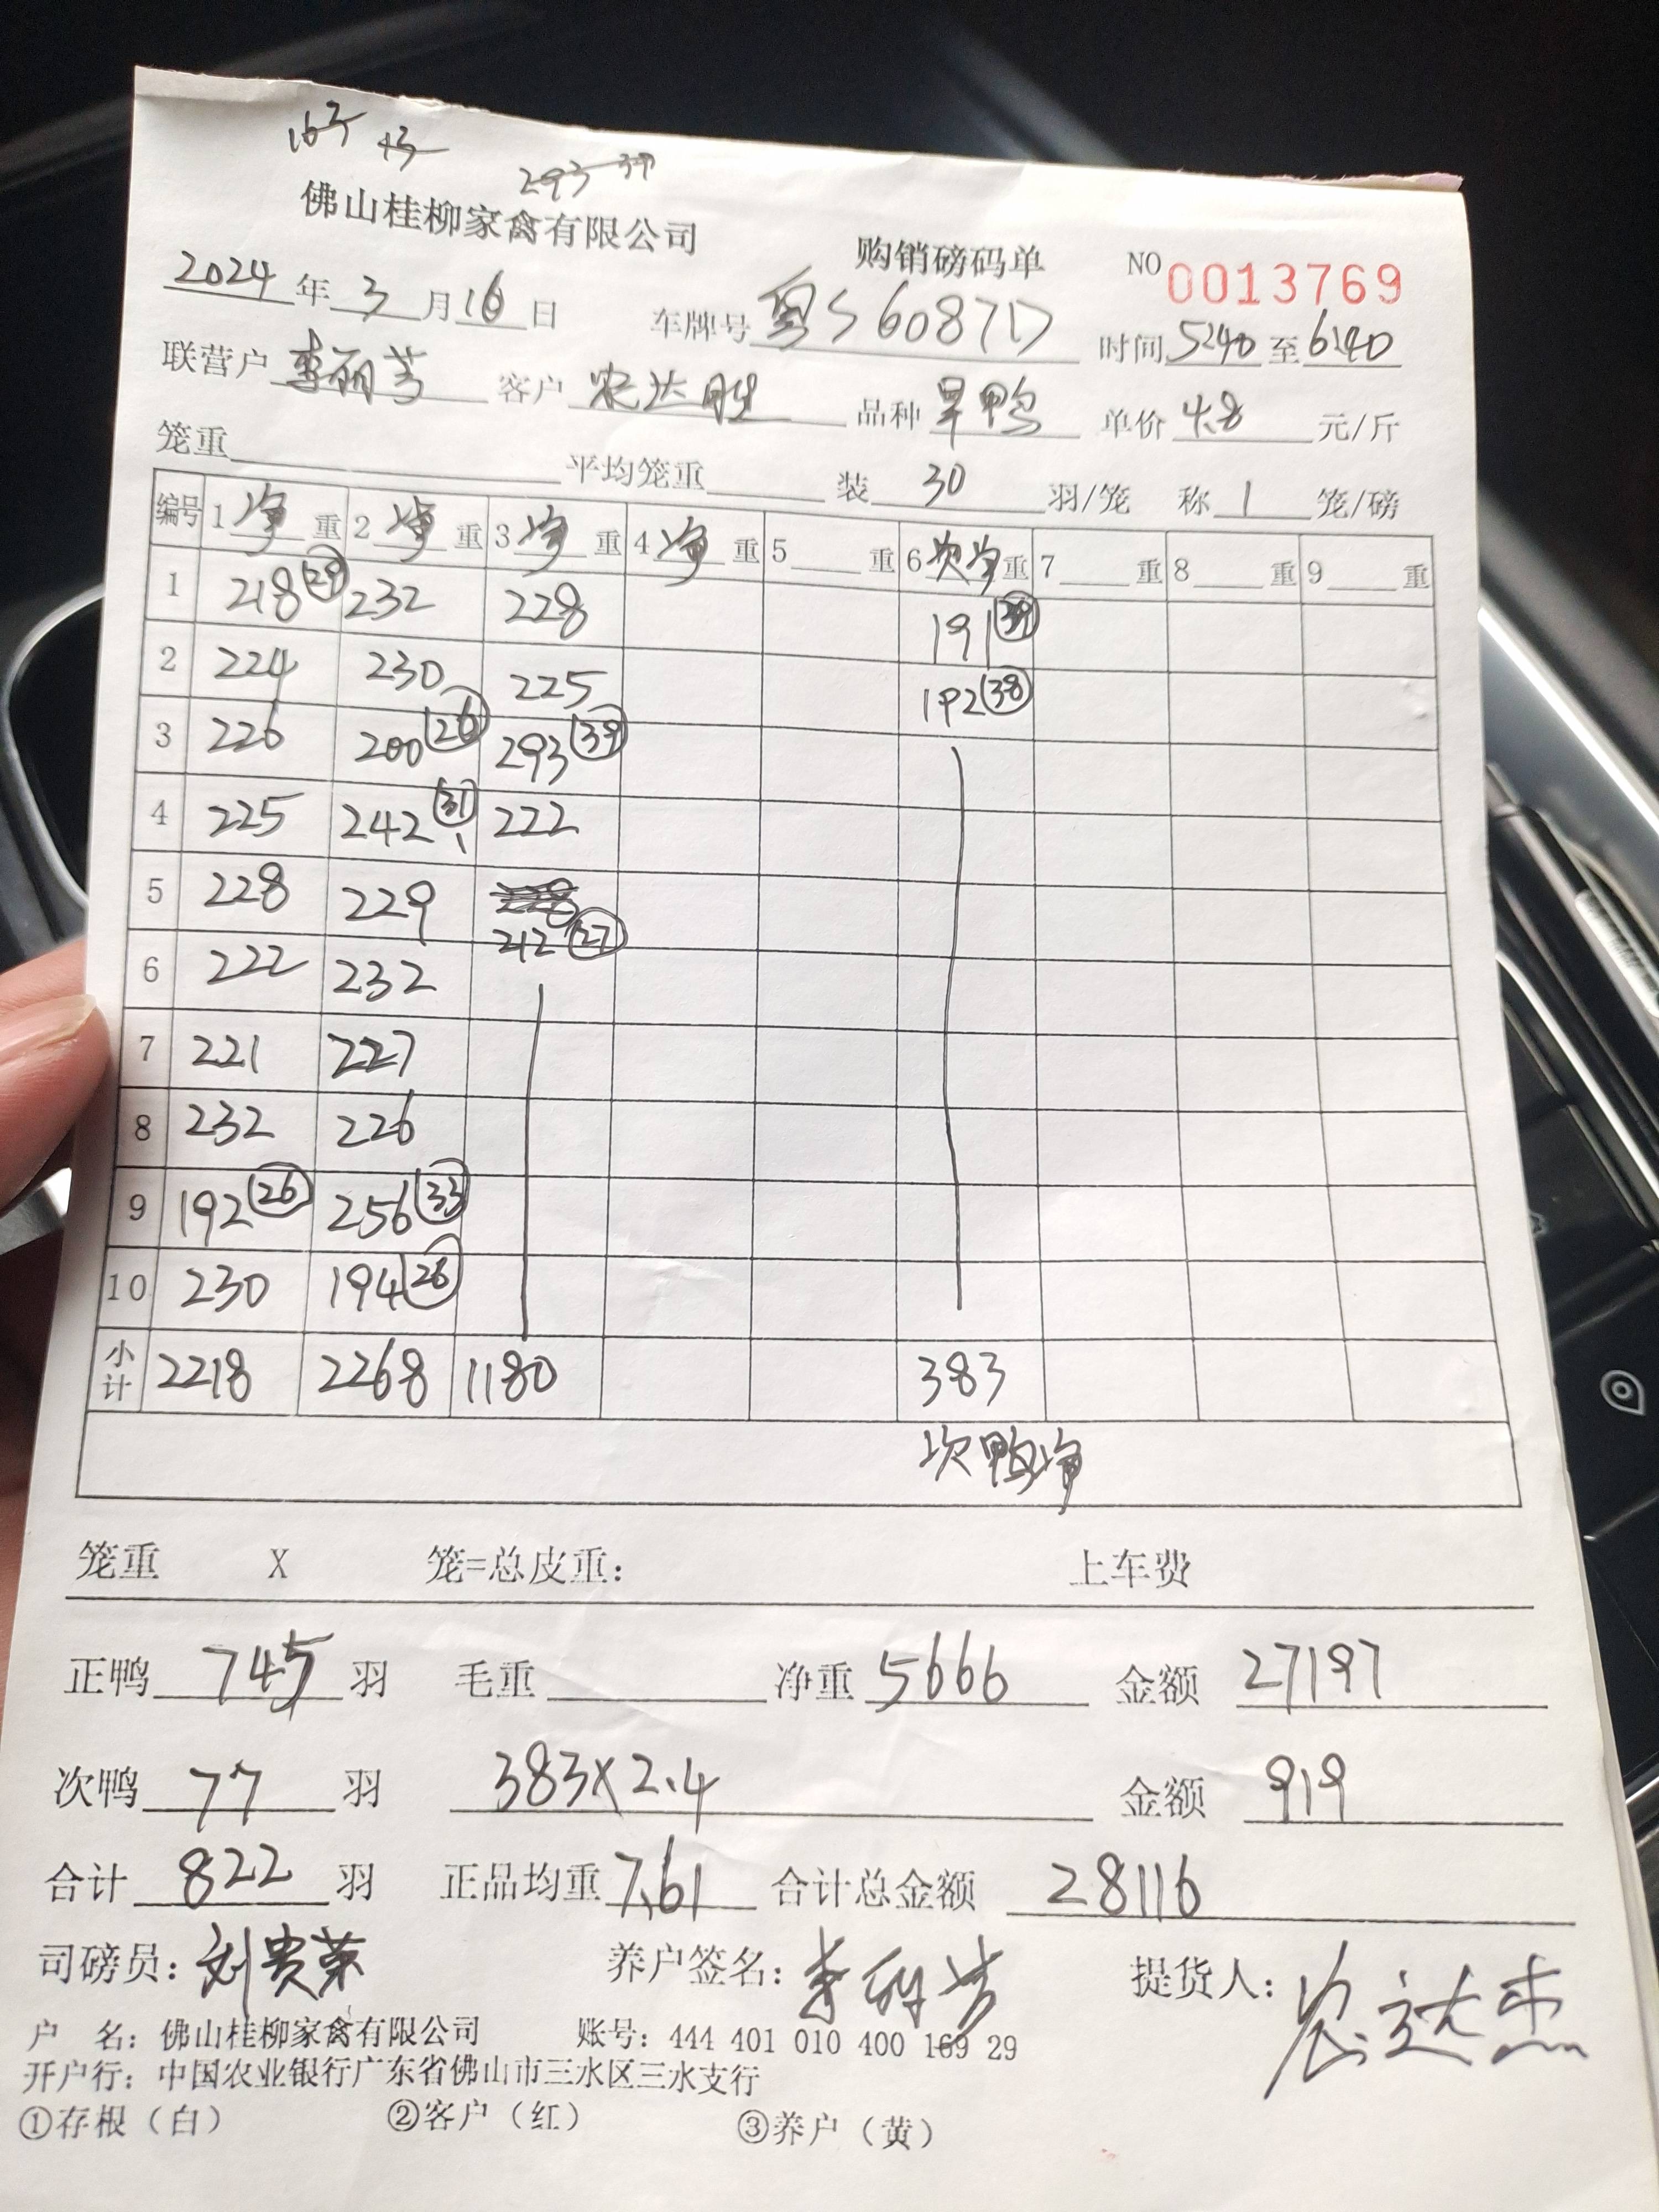 293 39
佛山桂柳家禽有限公司 购销磅码单 NO 0013769
2024年3月16日 车牌号 粤S6087D 时间 5:40 至 6:40
联营户 李丽芳 客户 农达胜 品种 旱鸭 单价 4.8 元/斤
笼重 平均笼重 装 30 羽/笼 称 1 笼/磅
编号 1 净 重 2 净 重 3 净 重 4 净 重 5 重 6 次净 重 7 重 8 重 9 重
1 218 (29) 232 228 191 (39)
2 224 230 225 192 (38)
3 226 200 (26) 293 (39)
4 225 242 (31) 222
5 228 229 212 (27)
6 222 232
7 221 227
8 232 226
9 192 (26) 256 (33)
10 230 194 (26)
小计 2218 2268 1180 383
次鸭净
笼重 X 笼=总皮重: 上车费
正鸭 745 羽 毛重 净重 5666 金额 27197
次鸭 77 羽 383×2.4 金额 919
合计 822 羽 正品均重 7.61 合计总金额 28116
司磅员: 刘贵荣 养户签名: 李丽芳 提货人: 农达杰
户 名: 佛山桂柳家禽有限公司 账号: 444 401 010 400 169 29
开户行: 中国农业银行广东省佛山市三水区三水支行
①存根（白） ②客户（红） ③养户（黄）